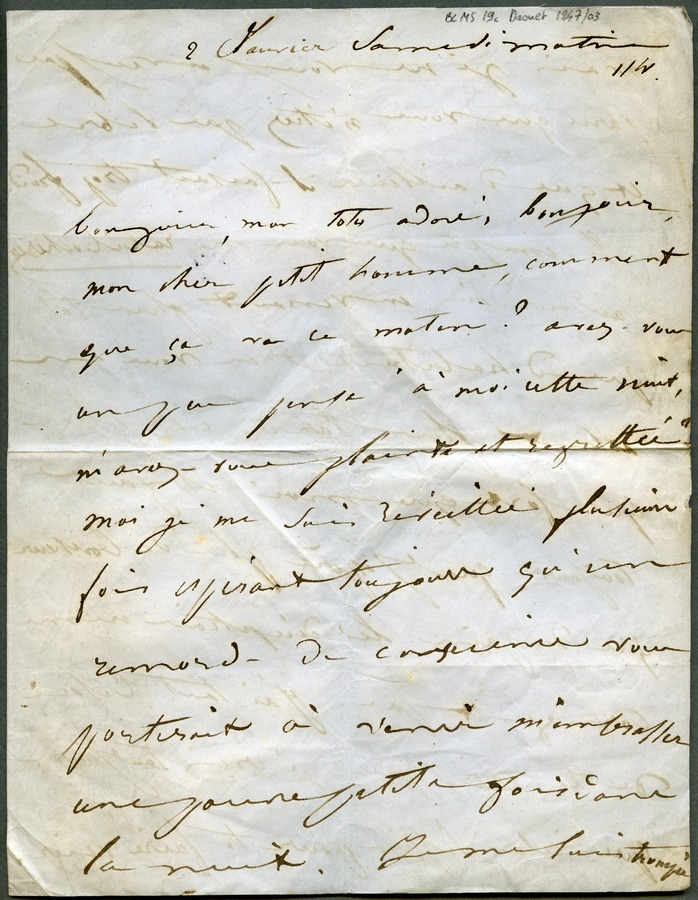 BC MS 19c Drouet 1847/03
2 Janvier Samedi matin
11h.
bonjour, mon toto adoré, bonjour,
mon cher petit homme, comment
que ça va ce matin ? avez-vous
un peu pensé à moi cette nuit,
m'avez-vous plainte et regrettée ?
moi je me suis réveillée plusieurs
fois espérant toujours qu'un
remord de conscience vous
porterait à venir m'embrasser
une pauvre petite fois dans
la nuit. Je me suis trompée